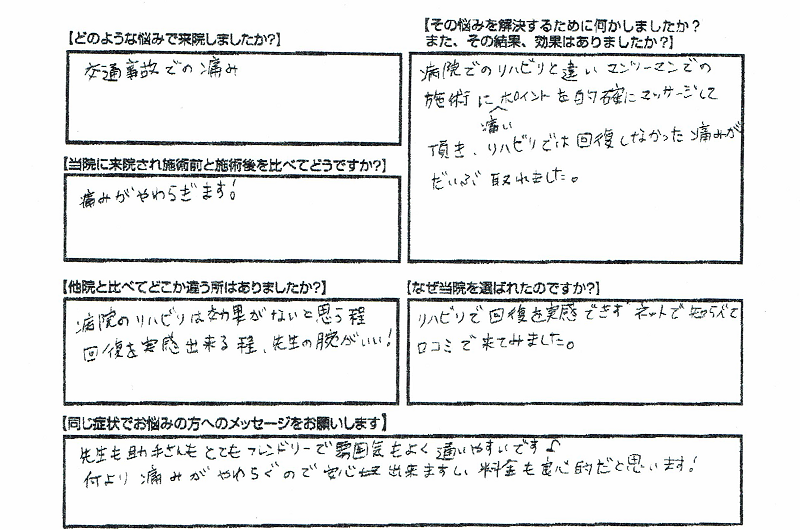 【どのような悩みで来院しましたか?】
交通事故での痛み
【当院に来院され施術前と施術後を比べてどうですか?】
痛みがやわらぎます!
【他院と比べてどこか違う所はありましたか?】
病院のリハビリは効果がないと思う程
回復を実感出来る程、先生の腕がいい!
【その悩みを解決するために何かしましたか?
また、その結果、効果はありましたか?】
病院でのリハビリと違いマンツーマンでの
施術に ポイントを的確にマッサージして
痛い
頂き、リハビリでは回復しなかった痛みが
だいぶ取れました。
【なぜ当院を選ばれたのですか?】
リハビリで回復を実感できず ネットで知らべて
口コミで来てみました。
【同じ症状でお悩みの方へのメッセージをお願いします】
先生も助手さんもとてもフレンドリーで雰囲気もよく通いやすいです♪
何より痛みがやわらぐので安心 出来ますしい 料金も良心的だと思います!